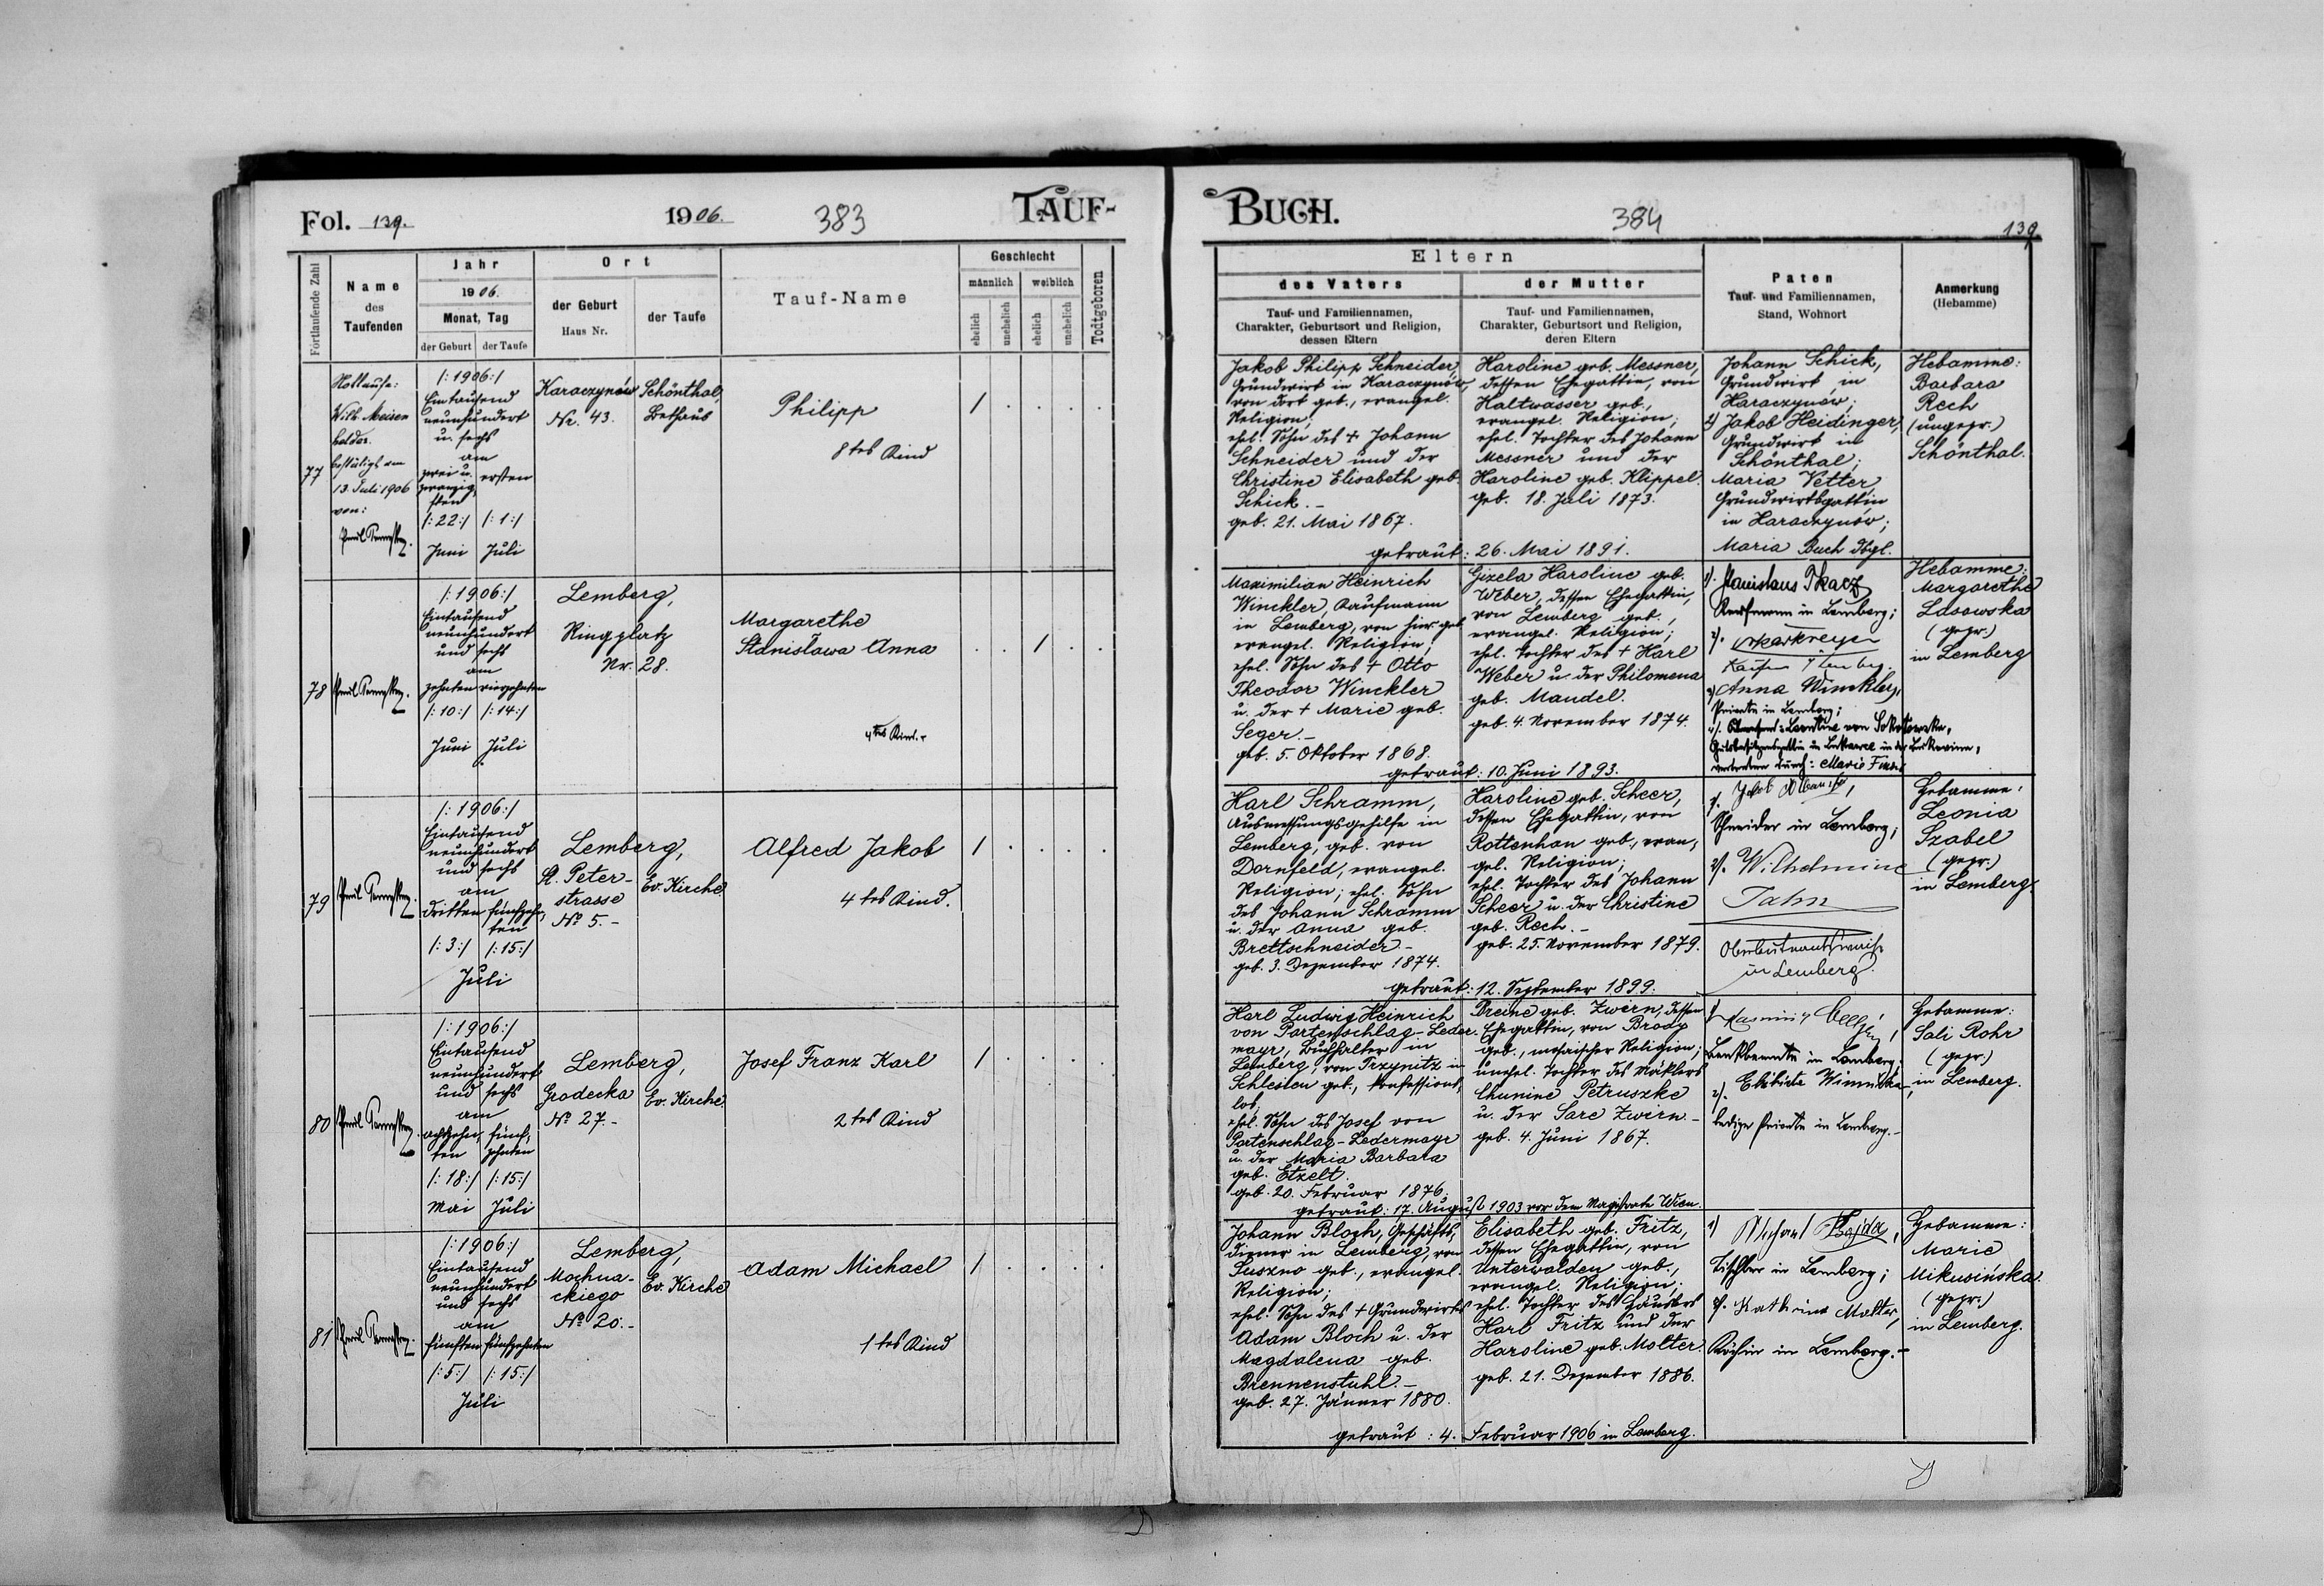 Fol. 139.
1906.
383
TAUF-
Fortlaufende Zahl
Name
des
Taufenden
Jahr
1906.
Monat, Tag
der Geburt
der Taufe
Ort
der Geburt
Haus Nr.
der Taufe
Tauf-Name
Geschlecht
männlich
weiblich
ehelich
unehelich
ehelich
unehelich
Todtgeboren
77
Nottaufe:
Wilh. Meisen
helder.
bestätigt am
13. Juli 1906
von:
/:1906:/
Eintausend
neunhundert
u. sechs
am
zwei u.
zwanzig
sten
/:22:/
Juni
ersten
/:1:/
Juli
Karaczynów
Nr. 43.
Schönthal,
Bethaus
Philipp
8tes Kind
/ . . . .
78
/:1906:/
Eintausend
neunhundert
und sechs
am
zehnten vierzehnten
/:10:/ /:14:/
Juni Juli
Lemberg,
Ringplatz
Nr. 28.
Margarethe
Stanisława Anna
4tes Kind.
. . / . .
79
/:1906:/
Eintausend
neunhundert
und sechs
am
dritten fünfzehn
ten
/:3:/ /:15:/
Juli
Lemberg,
St. Peter-
strasse
No 5.-
Ev. Kirche
Alfred Jakob
4tes Kind.
/ . . . .
80
/:1906:/
Eintausend
neunhundert
und sechs
am
achtzehn, fünf,
ten zehnten
/:18:/ /:15:/
Mai Juli
Lemberg,
Grodecka
No 27.-
Ev. Kirche.
Josef Franz Karl
2tes Kind
/ . . . .
81
/:1906:/
Eintausend
neunhundert
und sechs
am
fünften fünfzehnten
/:5:/ /:15:/
Juli
Lemberg,
Mochna-
ckiego
No 20.-
Ev. Kirche
Adam Michael
1tes Kind
/ . . . .
BUCH.
384
139.
Eltern
des Vaters
Tauf- und Familiennamen,
Charakter, Geburtsort und Religion,
dessen Eltern
der Mutter
Tauf- und Familiennamen,
Charakter, Geburtsort und Religion,
deren Eltern
Paten
Tauf- und Familiennamen,
Stand, Wohnort
Anmerkung
(Hebamme)
Jakob Philipp Schneider,
Grundwirt in Karaczynów,
von dort geb., evangel.
Religion,
ehel. Sohn des + Johann
Schneider und der
Christine Elisabeth geb.
Schick.-
geb. 21. Mai 1867.
Karoline geb. Messner,
dessen Ehegattin, von
Kaltwasser geb.,
evangel. Religion;
ehel. Tochter des Johann
Messner und der
Karoline geb. Klippel.
geb. 18. Juli 1873.
getraut: 26. Mai 1891.
Johann Schick,
Grundwirt in
Karaczynów;
2) Jakob Heidinger,
Grundwirt in
Schönthal;
Maria Vetter,
Grundwirtsgattin
in Karaczynów;
Maria Buch dtgl.
Hebamme:
Barbara
Rech
(ungepr.)
Schönthal.
Maximilian Heinrich
Winckler, Kaufmann
in Lemberg, von hier geb.
evangel. Religion,
ehel. Sohn des + Otto
Theodor Winckler
u. der + Marie geb.
Seger.-
geb. 5. Oktober 1868.
Gizela Karoline geb.
Weber, dessen Ehegattin,
von Lemberg geb.,
evangel. Religion;
ehel. Tochter des + Karl
Weber u. der Philomena
geb. Mandel.
geb. 4. November 1874.
getraut: 10. Juni 1893.
1). Stanislaus Tkacz
Kaufmann in Lemberg;
2).
3) Anna Winckler,
Private in Lemberg;
4).
vertreten durch: Marie
Hebamme:
Margarethe
Lasowska
(gepr.)
in Lemberg
Karl Schramm,
Ausmessungsgehilfe in
Lemberg, geb. von
Dornfeld, evangel.
Religion; ehel. Sohn
des Johann Schramm
u. der Anna geb.
Brettschneider-
geb. 3. Dezember 1874.
Karoline geb. Scheer,
dessen Ehegattin, von
Rottenhan geb., evan,
gel. Religion;
ehel. Tochter des Johann
Scheer u. der Christine
geb. Rech.-
geb. 25. November 1879.
getraut: 12. September 1899.
Jakob
Schneider in Lemberg;
2). Wilhelmine
Jahn
in Lemberg.
Hebamme:
Leonia
Szabel
(gepr.)
in Lemberg.
Karl Ludwig Heinrich
von Partenschlag-Leder-
mayr, Buchhalter in
Lemberg, von Trzynitz in
Schlesien geb., konfessions,
los,
ehel. Sohn des Josef von
Partenschlag-Ledermayr
u. der Maria Barbara
geb. Etzelt.
geb. 20. Februar 1876.
Dreine geb. Zwirn, dessen
Ehegattin, von Brody
geb., mosaischer Religion;
unehel. Tochter des Mäklers
Chunine Petruszke
u. der Sare Zwirn.-
geb. 4. Juni 1867.
getraut: 17. August 1903 vor dem Magistrate Wien.
Bankbeamte in Lemberg;
2).
ledige Private in Lemberg.-
Hebamme:
Sali Rohr
(gepr.)
in Lemberg.
Johann Bloch, Geschäfts,
diener in Lemberg, von
Suszno geb., evangel.
Religion;
ehel. Sohn des + Grundwirtes
Adam Bloch u. der
Magdalena geb.
Brennenstuhl.-
geb. 27. Jänner 1880.
Elisabeth geb. Fritz,
dessen Ehegattin, von
Unterwalden geb.,
evangel. Religion;
ehel. Tochter des Häuslers
Karl Fritz und der
Karoline geb. Molter.
geb. 21. Dezember 1886.
getraut: 4. Februar 1906 in Lemberg.
1)
Tischler in Lemberg;
2). Katharina Molter,
Köchin in Lemberg.-
Hebamme:
Marie
Mikusińska
(gepr.)
in Lemberg.